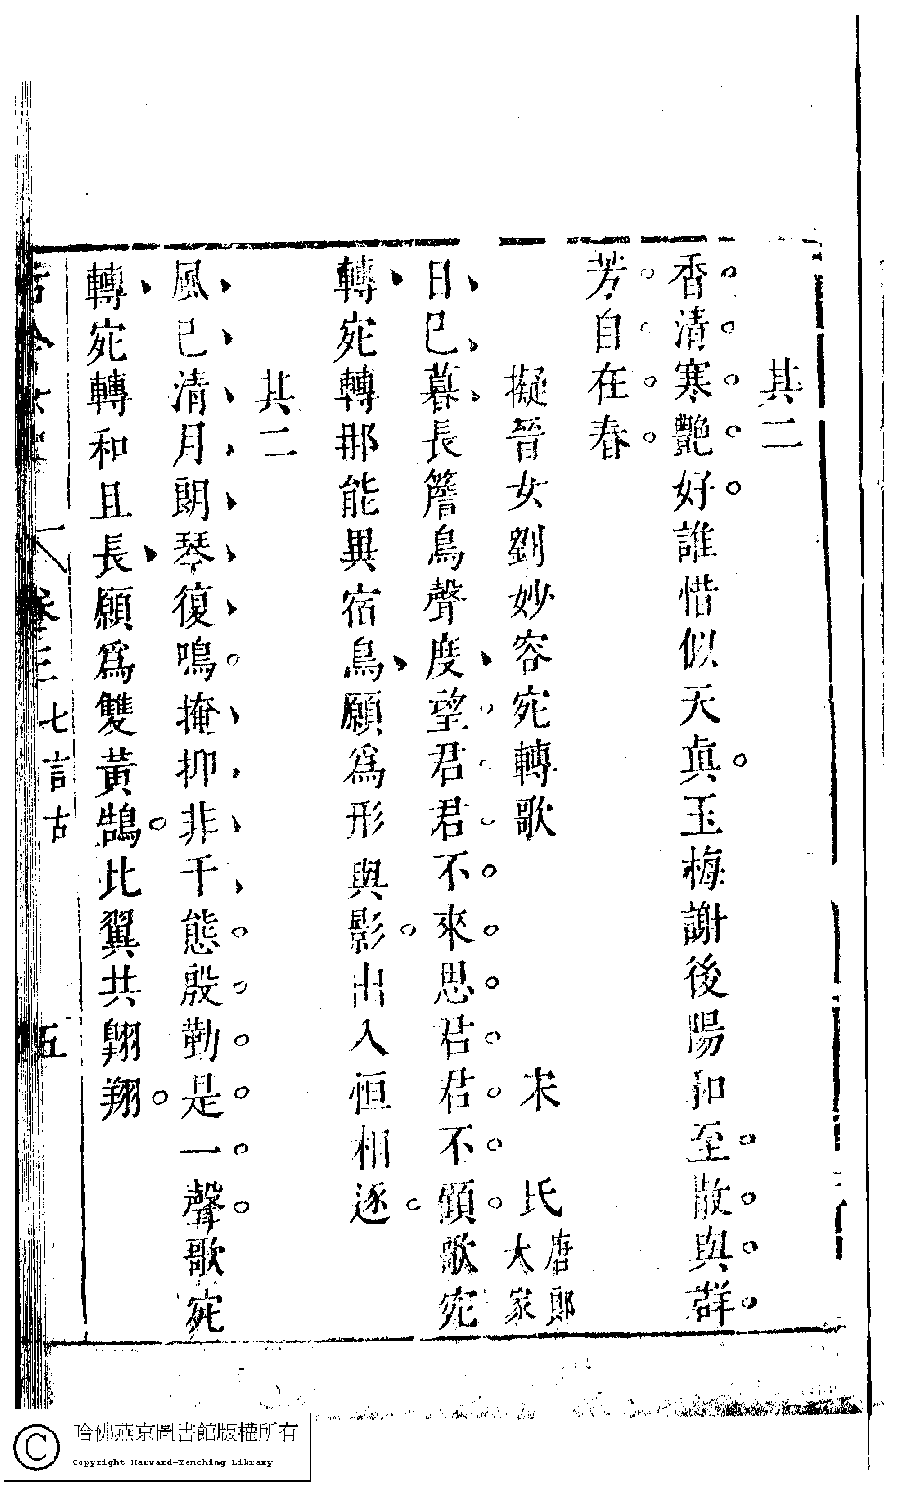 其二
香清寒艷好誰惜似天真玉梅謝後陽和至散與群
芳自在春
擬晉女劉妙容宛轉歌 宋氏 唐郎大家
日已暮長簷鳥聲度望君君不來思君君不顧歌宛
轉宛轉那能異宿鳥願爲形與影出入恒相逐
其二
風已清月朗琴復鳴掩抑非千態殷勤是一聲歌宛
轉宛轉和且長願爲雙黃鵠比翼共翱翔
古今女史 卷三 七言古 五
哈佛燕京圖書館版權所有
Copyright Harvard-Yenching Library